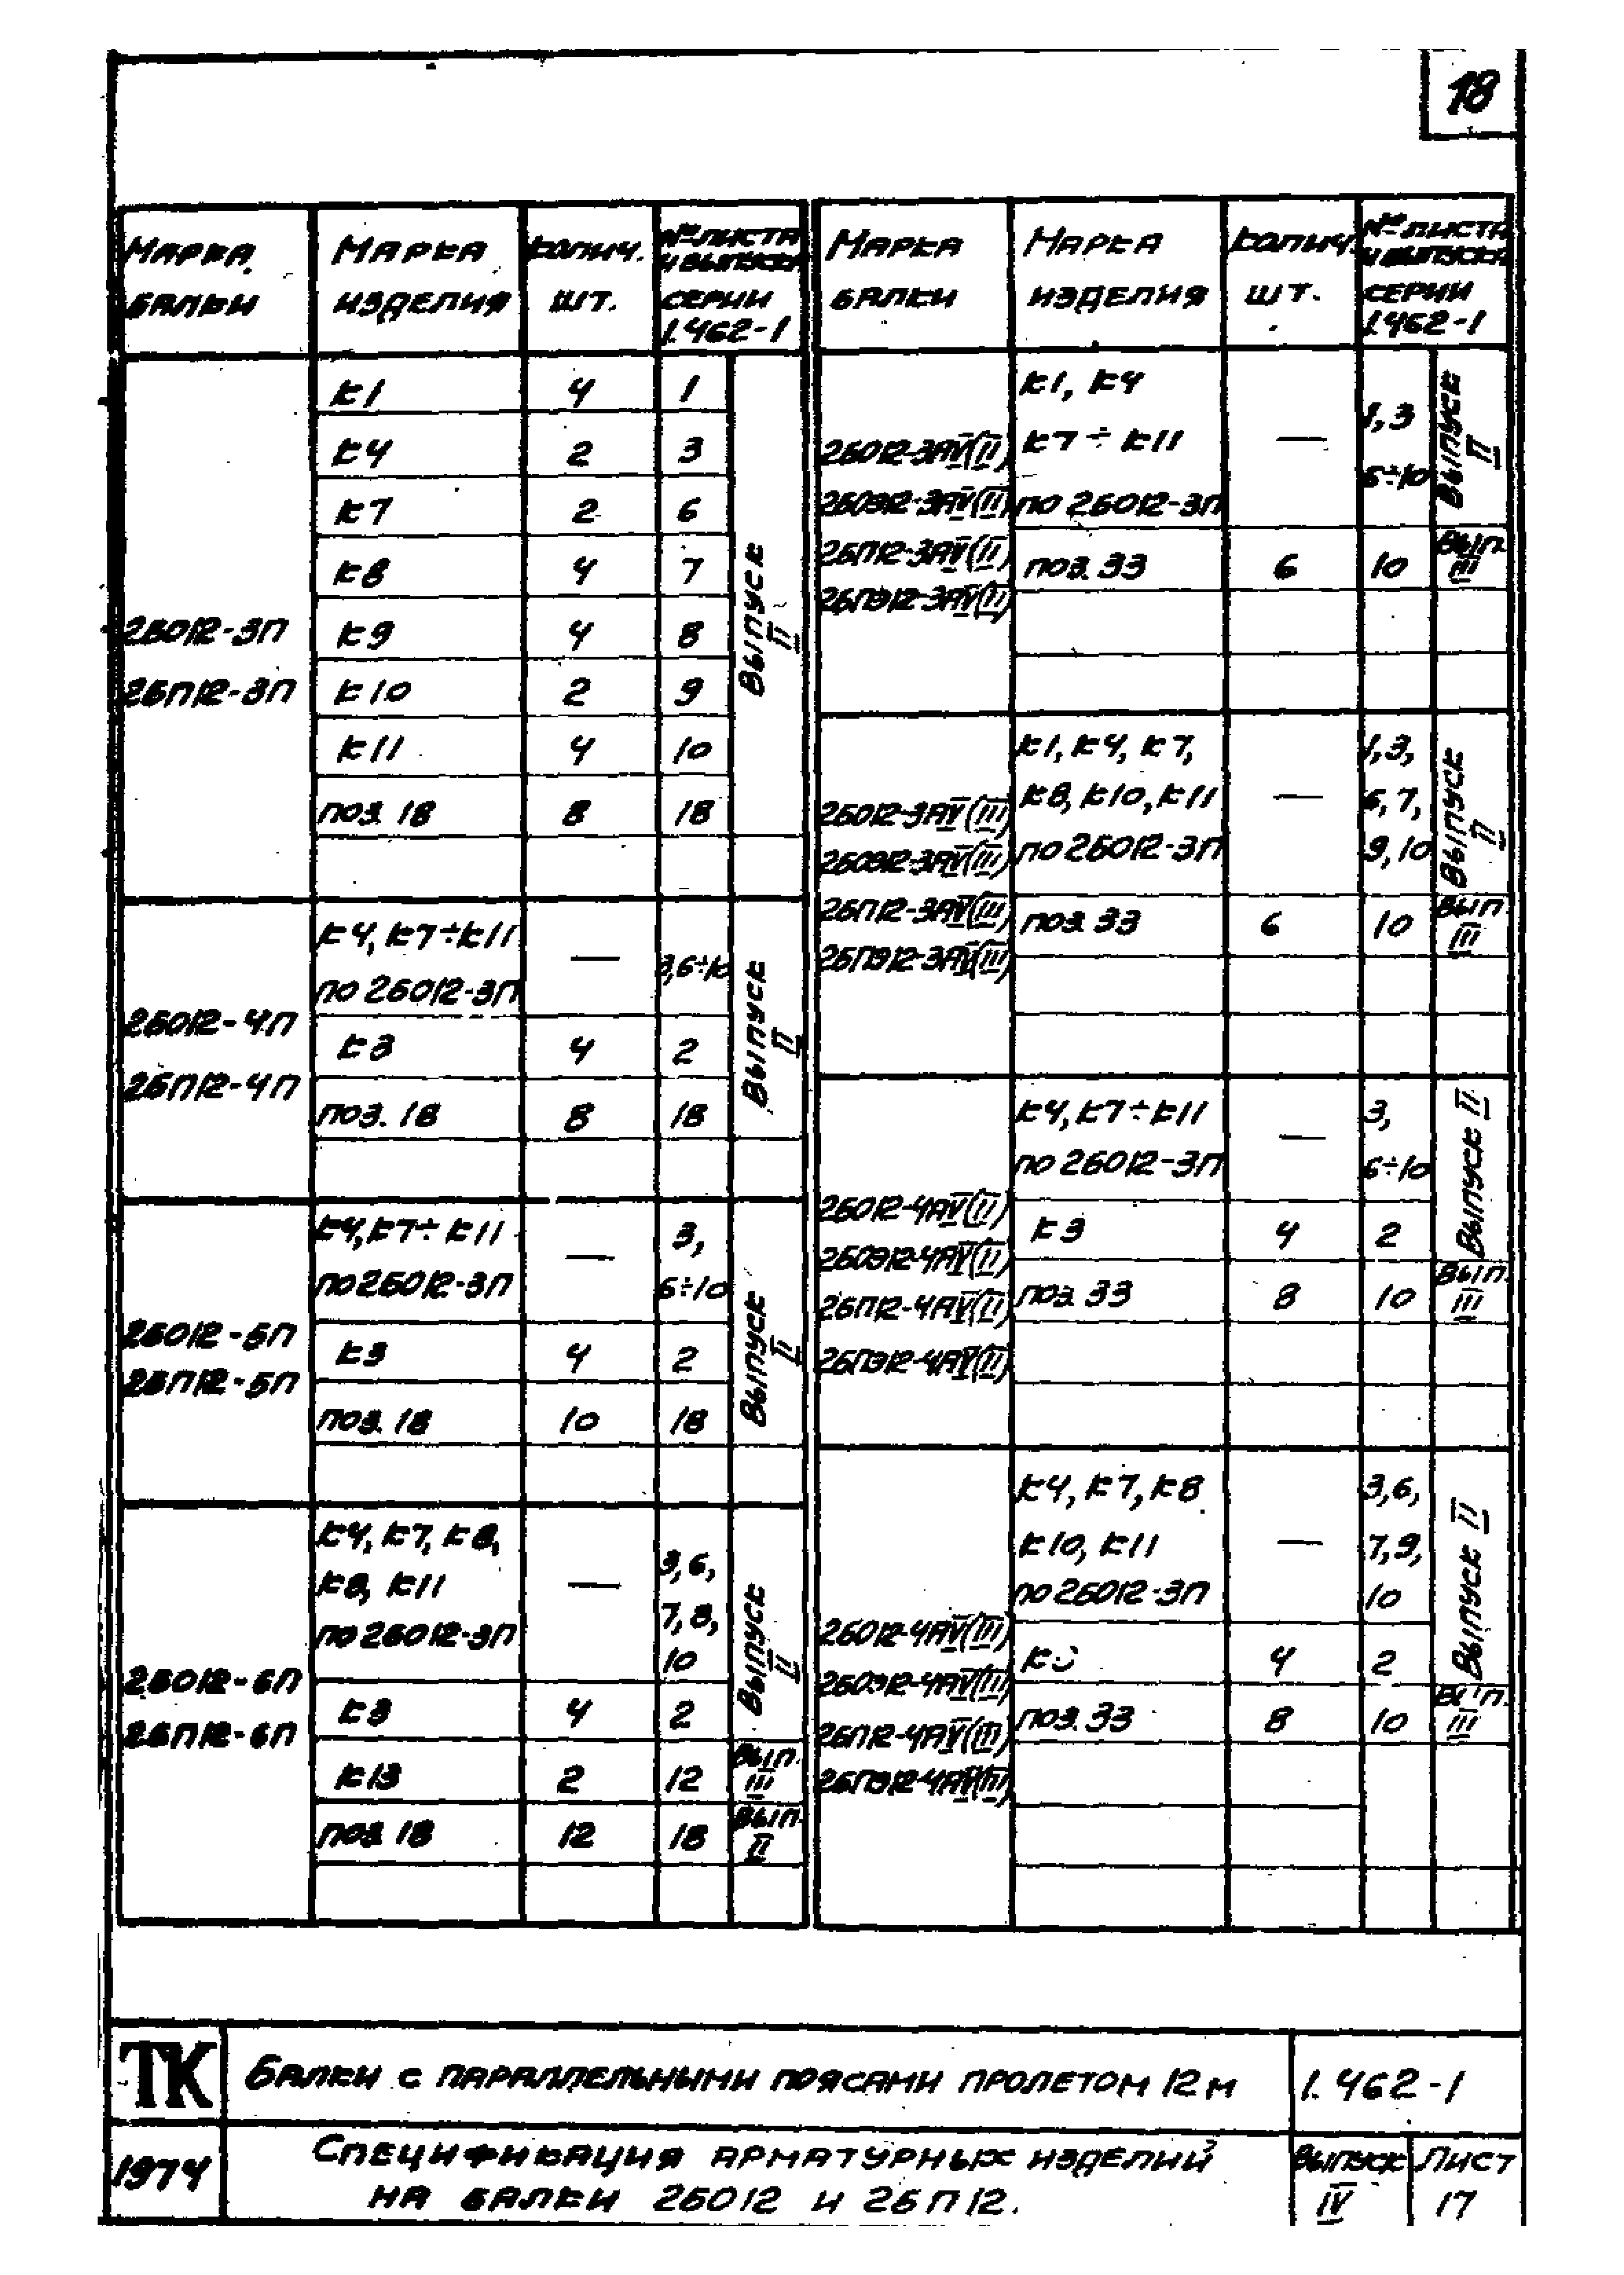 18
Марка балки | Марка изделия | Колич. шт. | №№ листа и выпуска серии 1.462-1
2БО12-3П
2БП12-3П
К1 | 4 | 1
К4 | 2 | 3
К7 | 2 | 6
К8 | 4 | 7
К9 | 4 | 8
К10 | 2 | 9
К11 | 4 | 10
поз. 18 | 8 | 18
Выпуск II
2БО12-4П
2БП12-4П
К4, К7÷К11
по 2БО12-3П | — | 3,6÷10
К3 | 4 | 2
поз. 18 | 8 | 18
Выпуск II
2БО12-5П
2БП12-5П
К4, К7÷К11
по 2БО12-3П | — | 3, 6÷10
К3 | 4 | 2
поз. 18 | 10 | 18
Выпуск II
2БО12-6П
2БП12-6П
К4, К7, К8,
К9, К11
по 2БО12-3П | — | 3,6, 7,8, 10
К3 | 4 | 2
Выпуск II
К13 | 2 | 12 | Вып. III
поз. 18 | 12 | 18 | Вып. II
Марка балки | Марка изделия | Колич. шт. | №№ листа и выпуска серии 1.462-1
2БО12-3АV(II)
2БОЭ12-3АV(II)
2БП12-3АV(II)
2БПЭ12-3АV(II)
К1, К4
К7÷К11
по 2БО12-3П | — | 1,3 6÷10 | Выпуск II
поз. 33 | 6 | 10 | Вып. III
2БО12-3АV(III)
2БОЭ12-3АV(III)
2БП12-3АV(III)
2БПЭ12-3АV(III)
К1, К4, К7,
К8, К10, К11
по 2БО12-3П | — | 1,3, 6,7, 9,10 | Выпуск II
поз. 33 | 6 | 10 | Вып. III
2БО12-4АV(II)
2БОЭ12-4АV(II)
2БП12-4АV(II)
2БПЭ12-4АV(II)
К4, К7÷К11
по 2БО12-3П | — | 3, 6÷10
К3 | 4 | 2
Выпуск II
поз. 33 | 8 | 10 | Вып. III
2БО12-4АV(III)
2БОЭ12-4АV(III)
2БП12-4АV(III)
2БПЭ12-4АV(III)
К4, К7, К8
К10, К11
по 2БО12-3П | — | 3,6, 7,9, 10
К3 | 4 | 2
Выпуск II
поз. 33 | 8 | 10 | Вып. III
ТК
Балки с параллельными поясами пролетом 12 м
1.462-1
1974
Спецификация арматурных изделий
на балки 2БО12 и 2БП12.
Выпуск IV
Лист 17